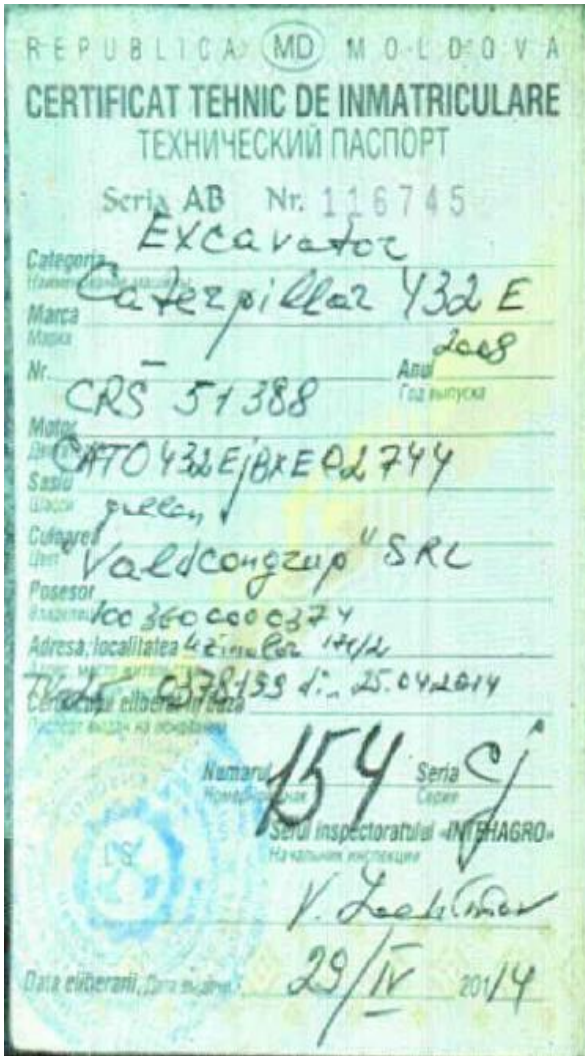 REPUBLICA MD MOLDOVA
CERTIFICAT TEHNIC DE INMATRICULARE
ТЕХНИЧЕСКИЙ ПАСПОРТ
Seria AB Nr. 116745
Categoria Excavator
Наименование машины
Marca Caterpillar 432 E
Марка
Nr. — Anul 2008
Год выпуска
Motor CRS 51388
Двигатель
Sasiu CAT0432EjBXE02744
Шасси
Culoarea galben
Цвет
Posesor "Valdcongrup" SRL
Владелец 1003600000374
Adresa, localitatea Uzinelor 174/2
Адрес, место жительства
0378199 din 25.04.2014
Certificatul eliberat in baza
Паспорт выдан на основании
Numarul 154 Seria Cj
Номерной знак Серия
Seful inspectoratului «INTEHAGRO»
Начальник инспекции
LS
V.
Data eliberarii, Дата выдачи 29/IV 2014